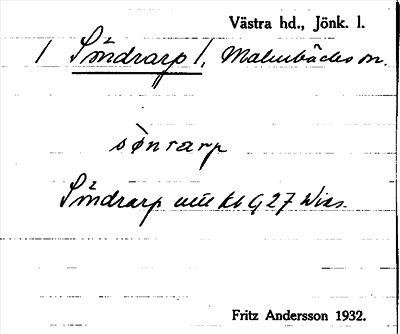 Västra hd., Jönk. l.
/ Söndrarp /, Malmbäcks sn.
sönrarp
Söndrarp Kb G 27
Fritz Andersson 1932.